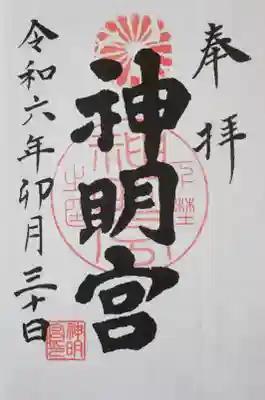 奉拝
神明宮
令和六年卯月三十日
神明宮印